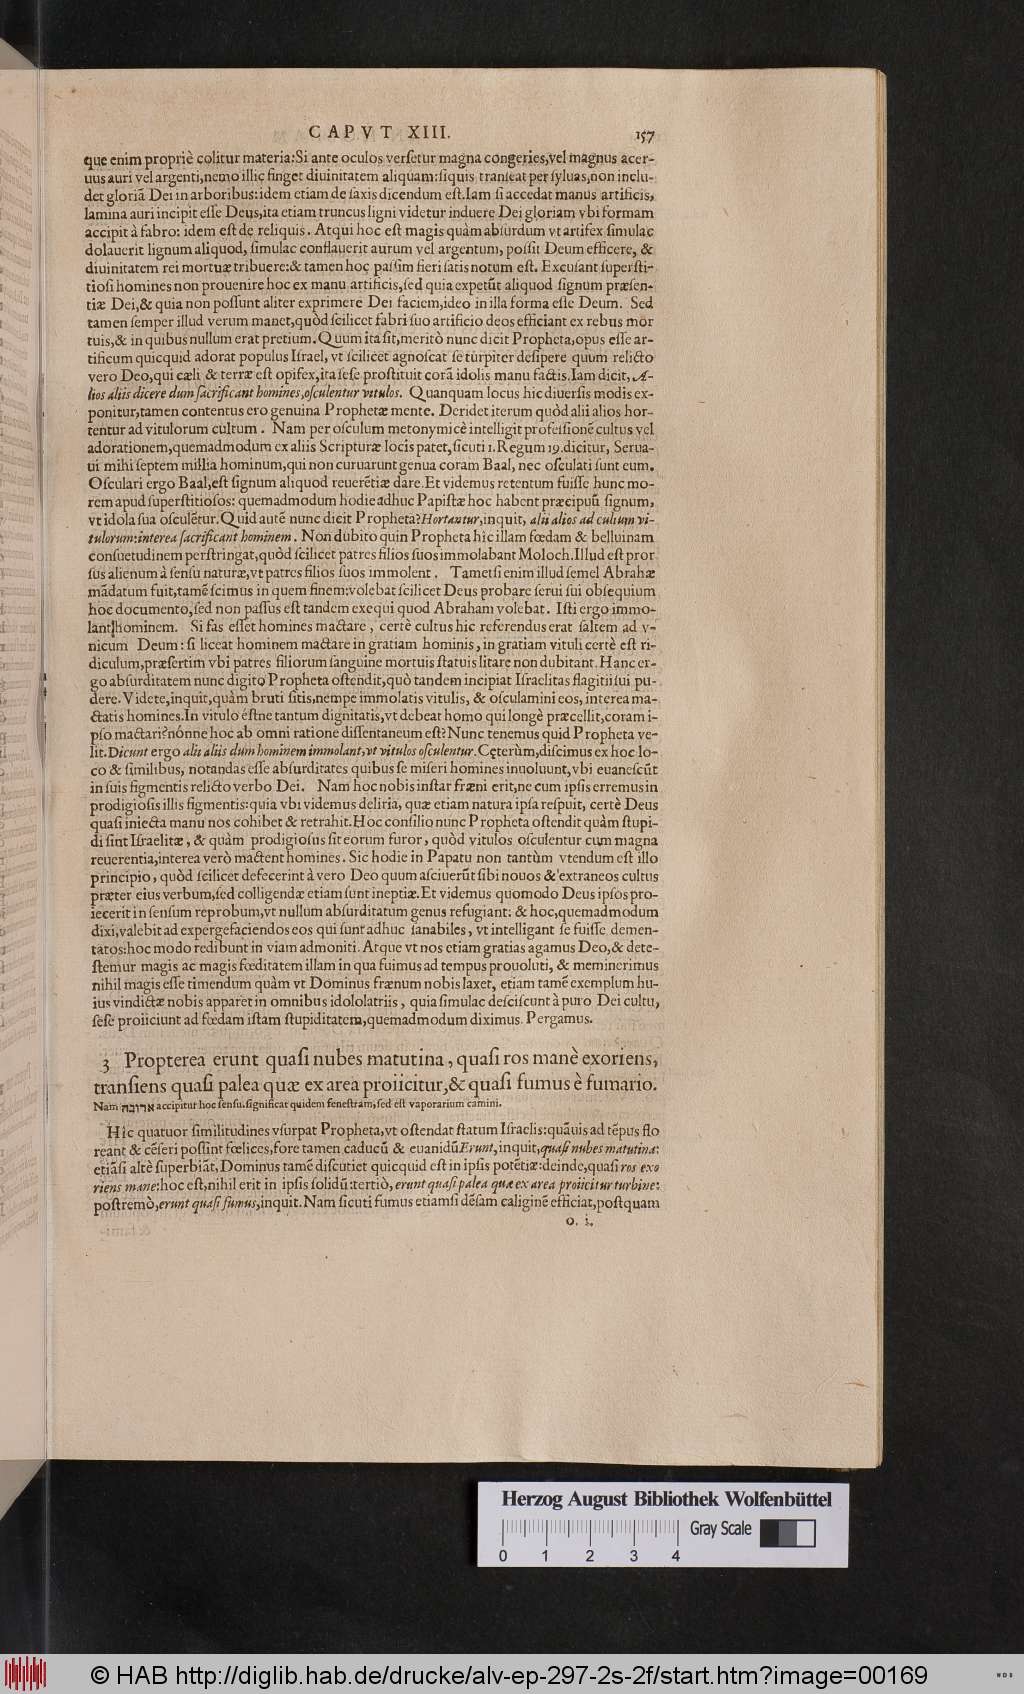 CAPVT XIII. 157
que enim propriè colitur materia: Si ante oculos verſetur magna congeries, vel magnus acer-
uus auri vel argenti, nemo illic finget diuinitatem aliquam: ſiquis tranſeat per ſyluas, non inclu-
det gloriã Dei in arboribus: idem etiam de ſaxis dicendum eſt. Iam ſi accedat manus artificis,
lamina auri incipit eſſe Deus, ita etiam truncus ligni videtur induere Dei gloriam vbi formam
accipit à fabro: idem eſt de reliquis. Atqui hoc eſt magis quàm abſurdum vt artifex ſimulac
dolauerit lignum aliquod, ſimulac conflauerit aurum vel argentum, poſſit Deum efficere, &
diuinitatem rei mortuæ tribuere: & tamen hoc paſſim fieri ſatis notum eſt. Excuſant ſuperſti-
tioſi homines non prouenire hoc ex manu artificis, ſed quia expetũt aliquod ſignum præſen-
tiæ Dei, & quia non poſſunt aliter exprimere Dei faciem, ideo in illa forma eſſe Deum. Sed
tamen ſemper illud verum manet, quòd ſcilicet fabri ſuo artificio deos efficiant ex rebus mor
tuis, & in quibus nullum erat pretium. Quum ita ſit, meritò nunc dicit Propheta, opus eſſe ar-
tificum quicquid adorat populus Iſrael, vt ſcilicet agnoſcat ſe turpiter deſipere quum relicto
vero Deo, qui cæli & terræ eſt opifex, ita ſeſe proſtituit corã idolis manu factis. Iam dicit, A-
lios aliis dicere dum ſacrificant homines, oſculentur vitulos. Quanquam locus hic diuerſis modis ex-
ponitur, tamen contentus ero genuina Prophetæ mente. Deridet iterum quòd alii alios hor-
tentur ad vitulorum cultum. Nam per oſculum metonymicè intelligit profeſſionẽ cultus vel
adorationem, quemadmodum ex aliis Scripturæ locis patet, ſicuti 1. Regum 19. dicitur, Serua-
ui mihi ſeptem millia hominum, qui non curuarunt genua coram Baal, nec oſculati ſunt eum.
Oſculari ergo Baal, eſt ſignum aliquod reuerẽtiæ dare. Et videmus retentum fuiſſe hunc mo-
rem apud ſuperſtitioſos: quemadmodum hodie adhuc Papiſtæ hoc habent præcipuũ ſignum,
vt idola ſua oſculẽtur. Quid autẽ nunc dicit Propheta? Hortantur, inquit, alii alios ad cultum vi-
tulorum: interea ſacrificant hominem. Non dubito quin Propheta hic illam fœdam & belluinam
conſuetudinem perſtringat, quòd ſcilicet patres filios ſuos immolabant Moloch. Illud eſt pror
ſus alienum à ſenſu naturæ, vt patres filios ſuos immolent. Tametſi enim illud ſemel Abrahæ
mãdatum fuit, tamẽ ſcimus in quem finem: volebat ſcilicet Deus probare ſerui ſui obſequium
hoc documento, ſed non paſſus eſt tandem exequi quod Abraham volebat. Iſti ergo immo-
lant hominem. Si fas eſſet homines mactare, certè cultus hic referendus erat ſaltem ad v-
nicum Deum: ſi liceat hominem mactare in gratiam hominis, in gratiam vituli certè eſt ri-
diculum, præſertim vbi patres filiorum ſanguine mortuis ſtatuis litare non dubitant. Hanc er-
go abſurditatem nunc digito Propheta oſtendit, quò tandem incipiat Iſraelitas flagitii ſui pu-
dere. Videte, inquit, quàm bruti ſitis, nempe immolatis vitulis, & oſculamini eos, interea ma-
ctatis homines. In vitulo éſtne tantum dignitatis, vt debeat homo qui longè præcellit, coram i-
pſo mactari? nónne hoc ab omni ratione diſſentaneum eſt? Nunc tenemus quid Propheta ve-
lit. Dicunt ergo alii aliis dum hominem immolant, vt vitulos oſculentur. Cęterùm, diſcimus ex hoc lo-
co & ſimilibus, notandas eſſe abſurditates quibus ſe miſeri homines inuoluunt, vbi euaneſcũt
in ſuis figmentis relicto verbo Dei. Nam hoc nobis inſtar fræni erit, ne cum ipſis erremus in
prodigioſis illis figmentis: quia vbi videmus deliria, quæ etiam natura ipſa reſpuit, certè Deus
quaſi iniecta manu nos cohibet & retrahit. Hoc conſilio nunc Propheta oſtendit quàm ſtupi-
di ſint Iſraelitæ, & quàm prodigioſus ſit eorum furor, quòd vitulos oſculentur cum magna
reuerentia, interea verò mactent homines. Sic hodie in Papatu non tantùm vtendum eſt illo
principio, quòd ſcilicet defecerint à vero Deo quum aſciuerũt ſibi nouos & extraneos cultus
præter eius verbum, ſed colligendæ etiam ſunt ineptiæ. Et videmus quomodo Deus ipſos pro-
iecerit in ſenſum reprobum, vt nullum abſurditatum genus refugiant: & hoc, quemadmodum
dixi, valebit ad expergefaciendos eos qui ſunt adhuc ſanabiles, vt intelligant ſe fuiſſe demen-
tatos: hoc modo redibunt in viam admoniti. Atque vt nos etiam gratias agamus Deo, & dete-
ſtemur magis ac magis fœditatem illam in qua fuimus ad tempus prouoluti, & meminerimus
nihil magis eſſe timendum quàm vt Dominus frænum nobis laxet, etiam tamẽ exemplum hu-
ius vindictæ nobis apparet in omnibus idololatriis, quia ſimulac deſciſcunt à puro Dei cultu,
ſeſe proiiciunt ad fœdam iſtam ſtupiditatem, quemadmodum diximus. Pergamus.
3 Propterea erunt quaſi nubes matutina, quaſi ros manè exoriens,
tranſiens quaſi palea quæ ex area proiicitur, & quaſi fumus è fumario.
Nam ארובה accipitur hoc ſenſu. ſignificat quidem feneſtram, ſed eſt vaporarium camini.
Hic quatuor ſimilitudines vſurpat Propheta, vt oſtendat ſtatum Iſraelis: quãuis ad tẽpus flo
reant & cẽſeri poſſint fœlices, fore tamen caducũ & euanidũ Erunt, inquit, quaſi nubes matutina:
etiãſi altè ſuperbiãt, Dominus tamẽ diſcutiet quicquid eſt in ipſis potẽtiæ: deinde, quaſi ros exo
riens mane: hoc eſt, nihil erit in ipſis ſolidũ: tertiò, erunt quaſi palea quæ ex area proiicitur turbine:
poſtremò, erunt quaſi fumus, inquit. Nam ſicuti fumus etiamſi dẽſam caliginẽ efficiat, poſtquam
O. i.
Herzog August Bibliothek Wolfenbüttel
Gray Scale
0 1 2 3 4
© HAB http://diglib.hab.de/drucke/alv-ep-297-2s-2f/start.htm?image=00169